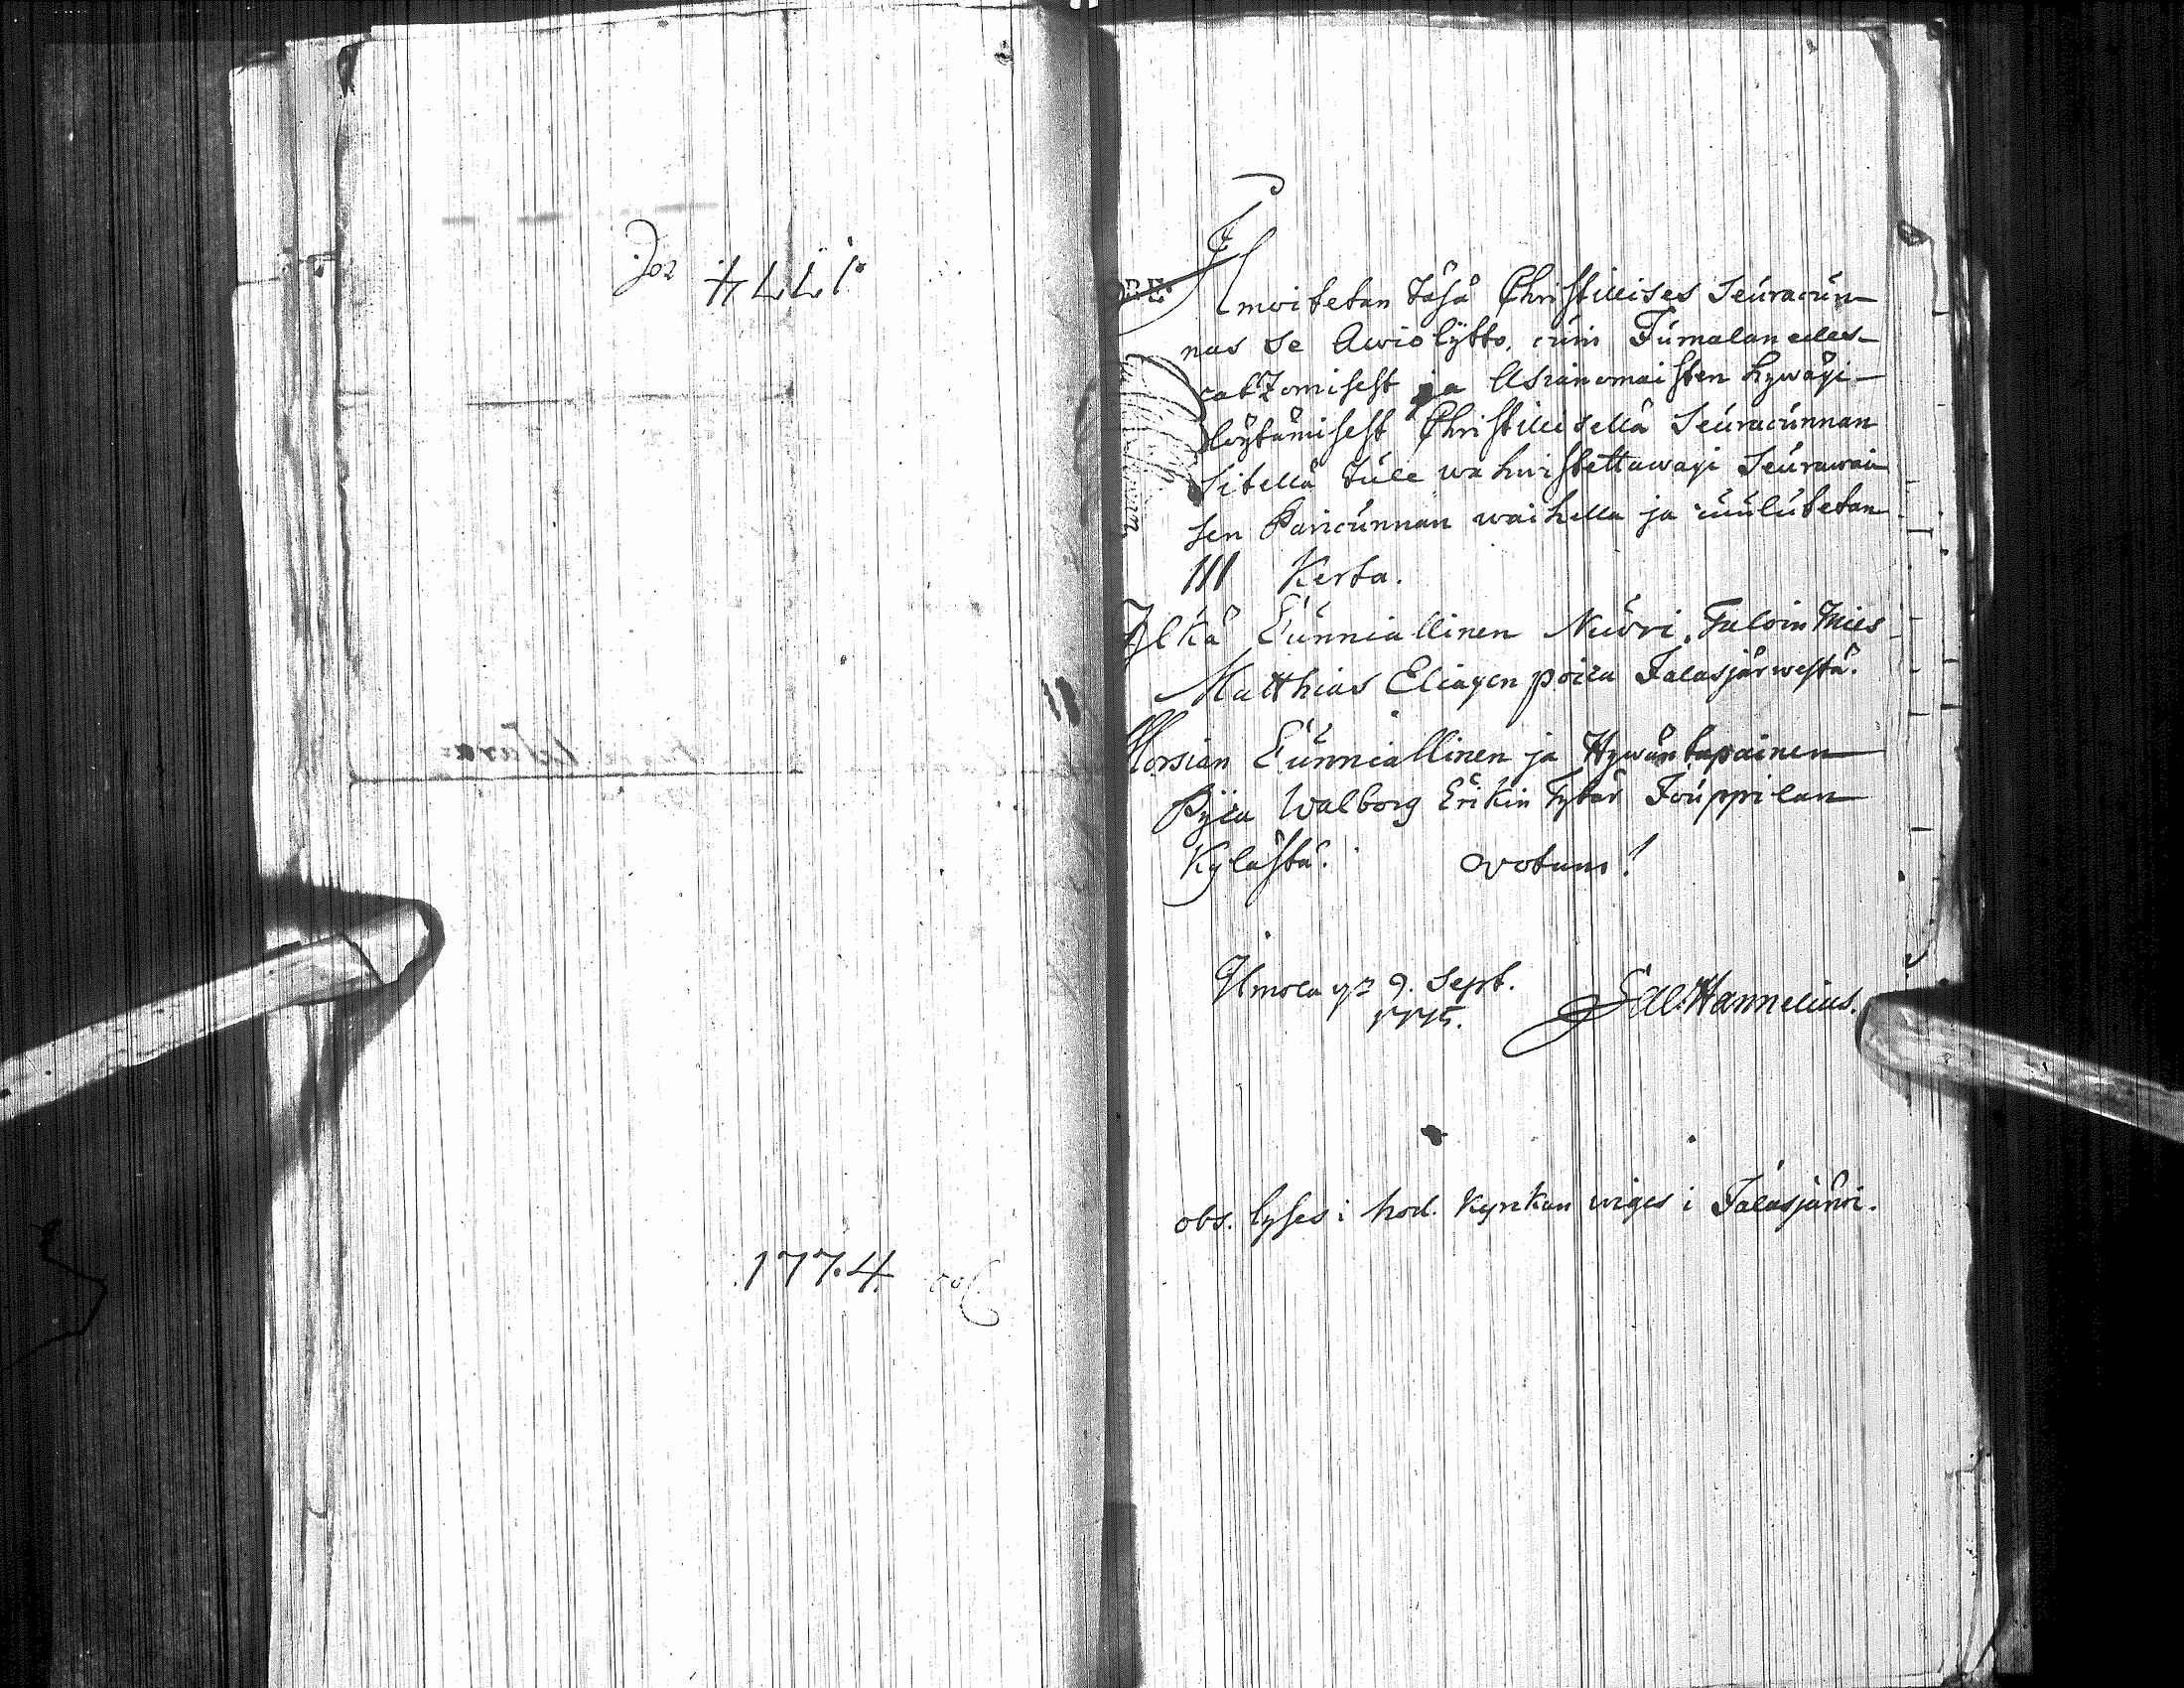 1774.
1774
Ilmoitetan täsä Christillises Seuracun-
nas se Awiolijtto, cuin Jumalan edes-
catzomisest ja Asianomaisten hywäxi-
löytämisest Christillisellä Seuracunnan
sitellä tule wahwistettawaxi Seurawai
sen Pariscunnan waihella ja cuulutetan
III Kerta.
Yljkä Cunniallinen Nuori Taloin Mies
Matthias Eliaxen poica Jalasjärwestä.
Morsian Cunniallinen ja Hywäntapainen
Pijca Walborg Erikin Tytär Jouppilan
Kylästä. Votum!
Ilmola 9. Sept.
1775.
Hannelius.
obs. lyses i mod. Kyrkan wiges i Jalasjärwi.